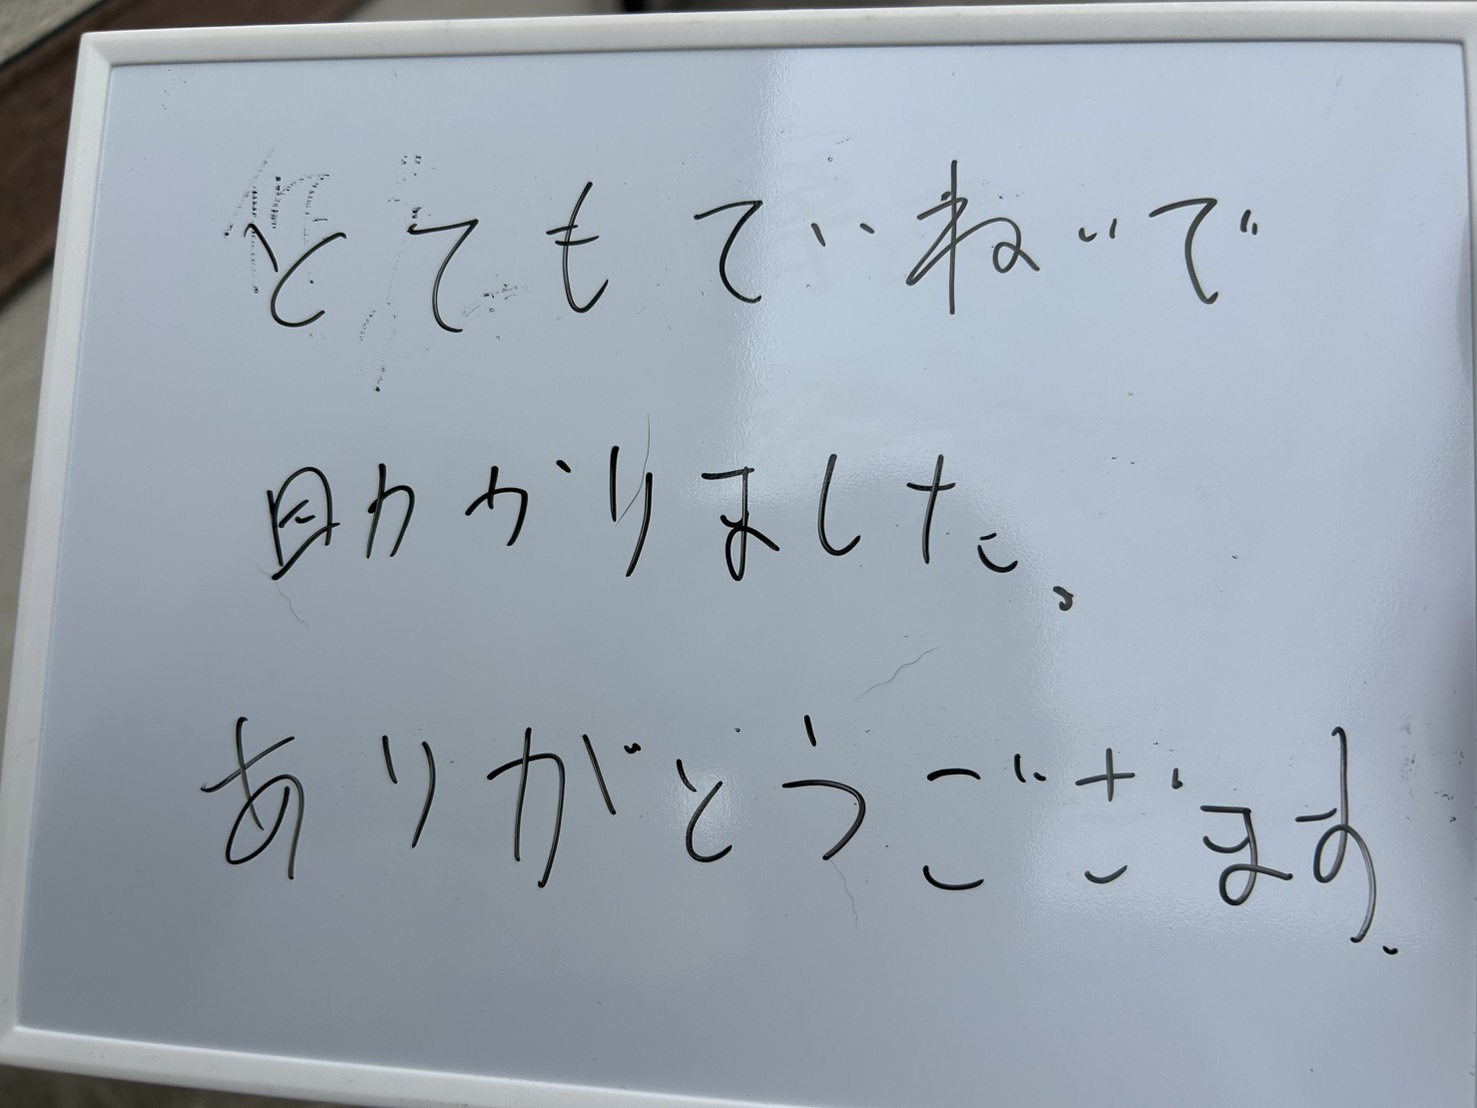 とてもていねいで
助かりました。
ありがとうござます.